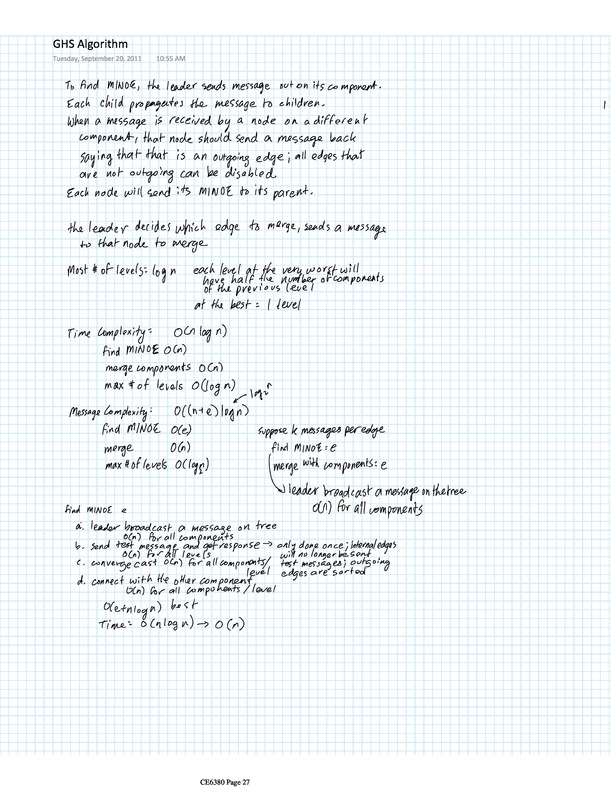 GHS Algorithm
Tuesday, September 20, 2011 10:55 AM
To find MINOE, the leader sends message out on its component.
Each child propagates the message to children.
When a message is received by a node on a different
component, that node should send a message back
saying that that is an outgoing edge; all edges that
are not outgoing can be disabled.
Each node will send its MINOE to its parent.
the leader decides which edge to merge, sends a message
to that node to merge
Most # of levels: log n each level at the very worst will
have half the number of components
of the previous level
at the best = 1 level
Time Complexity: O(n log n)
find MINOE O(n)
merge components O(n)
max # of levels O(log n)
log₂n
Message Complexity: O((n+e) log n)
find MINOE O(e) suppose k messages per edge
merge O(n) find MINOE = e
max # of levels O(log n) merge with components: e
leader broadcast a message on the tree
O(n) for all components
find MINOE e
a. leader broadcast a message on tree
O(n) for all components
b. send test message and get response → only done once; internal edges
O(n) for all levels will no longer be sent
c. convergecast O(n) for all components/ test messages; outgoing
level edges are sorted
d. connect with the other component
O(n) for all components / level
O(e+nlogn) best
Time = O(nlogn) → O(n)
CE6380 Page 27